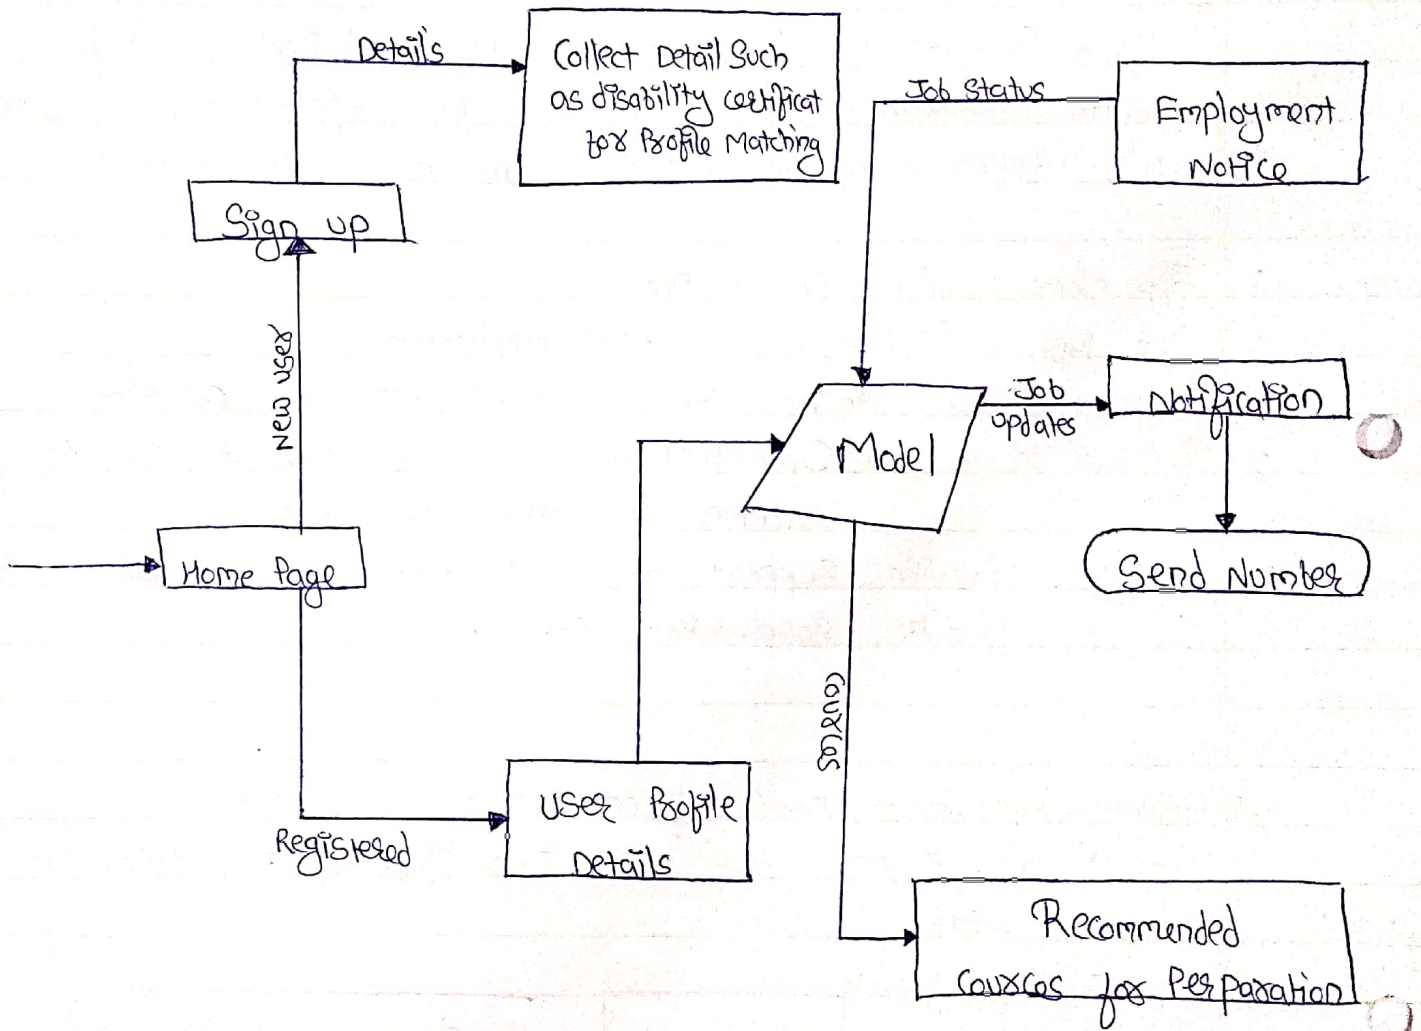 Details
Collect Detail Such
as disability certificat
for Profile Matching
Job Status
Employment
Notice
Sign up
New user
Job
updates
Notification
Model
Home Page
Send Number
Cources
User Profile
Details
Registered
Recommended
Cources for Perparation